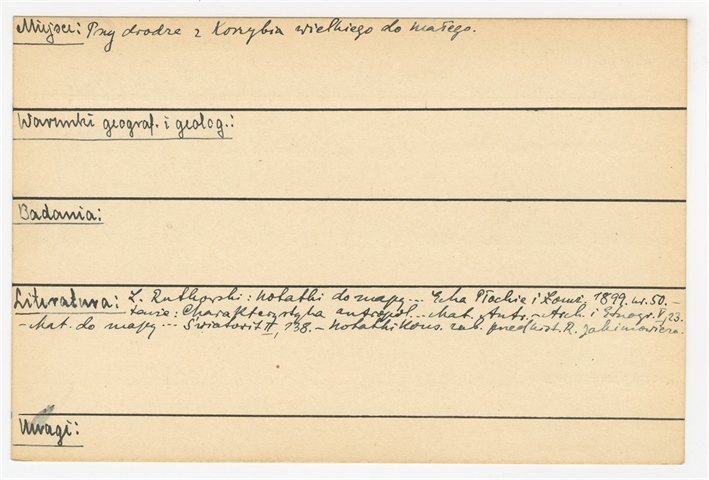 Miejsce: Przy drodze z Korzybia wielkiego do małego.
Warunki geograf. i geolog.:
Badania:
Literatura: L. Rutkowski: Notatki do mapy... Echa Płockie i Łomż. 1899. nr. 50. –
tenże: Charakterystyka antropol... Mat. Antr.-Arch. i Etnogr. V, 23.
- Mat. do mapy... Światowit II, 138. – Notatki Kons. zab. przedhist. R. Jakimowicza.
Uwagi: